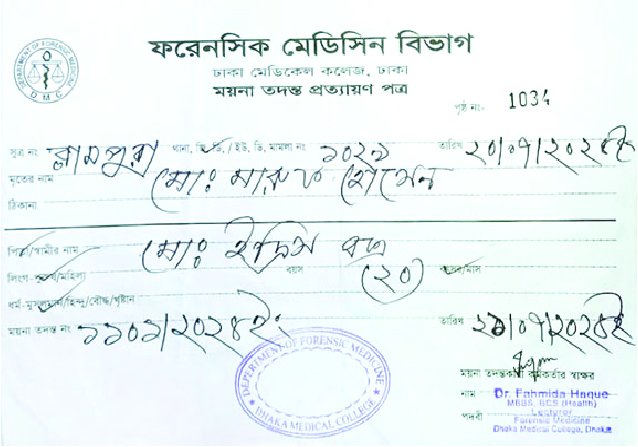 ফরেনসিক মেডিসিন বিভাগ
ঢাকা মেডিকেল কলেজ, ঢাকা
ময়না তদন্ত প্রত্যায়ণ পত্র
DEPARTMENT OF FORENSIC MEDICINE
D M C
পৃষ্ঠ নং- 1034
সূত্র নং রামপুরা থানা, জি, ডি, / ইউ, ডি, মামলা নং তারিখ ২০/০৭/২০২৪ইং
মৃতের নাম মোঃ মারুফ হোসেন
ঠিকানা
পিতা/স্বামীর নাম মোঃ ইদ্রিস
লিংগ-পুরুষ/মহিলা বয়স (২০) বৎসর/মাস
ধর্ম-মুসলমান/হিন্দু/বৌদ্ধ/খৃষ্টান
ময়না তদন্ত নং তারিখ ২১/০৭/২০২৪ইং
DEPERTMENT OF FORENSIC MEDICINE
DHAKA MEDICAL COLLEGE
ময়না তদন্তকারী কর্মকর্তার স্বাক্ষর
নাম Dr. Fahmida Haque
MBBS, BCS (Health)
Lecturer
পদবী Forensic Medicine
Dhaka Medical College, Dhaka